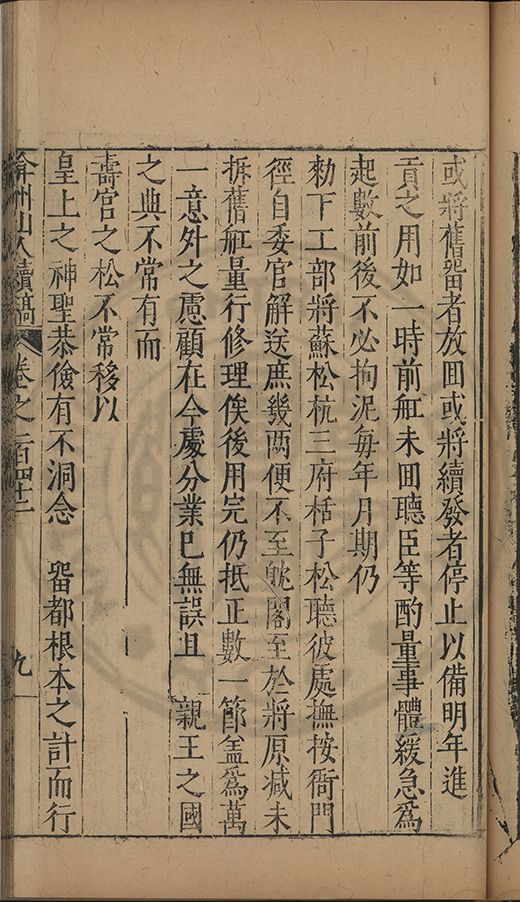 或將舊畱者放囬或將續發者停止以備明年進
貢之用如一時前舡未囬聽臣等酌量事體緩急爲
起數前後不必拘泥每年月期仍
勑下工部將蘇松杭三府栝子松聽彼處撫按衙門
徑自委官解送庶幾两便不至躭閣至於將原减未
拆舊舡量行修理俟後用完仍抵正數一節盖爲萬
一意外之慮顧在今處分業已無誤且 親王之國
之典不常有而
壽宮之松不常移以
皇上之神聖恭儉有不洞念 畱都根本之計而行
弇州山人續稿 卷之一百四十二 九